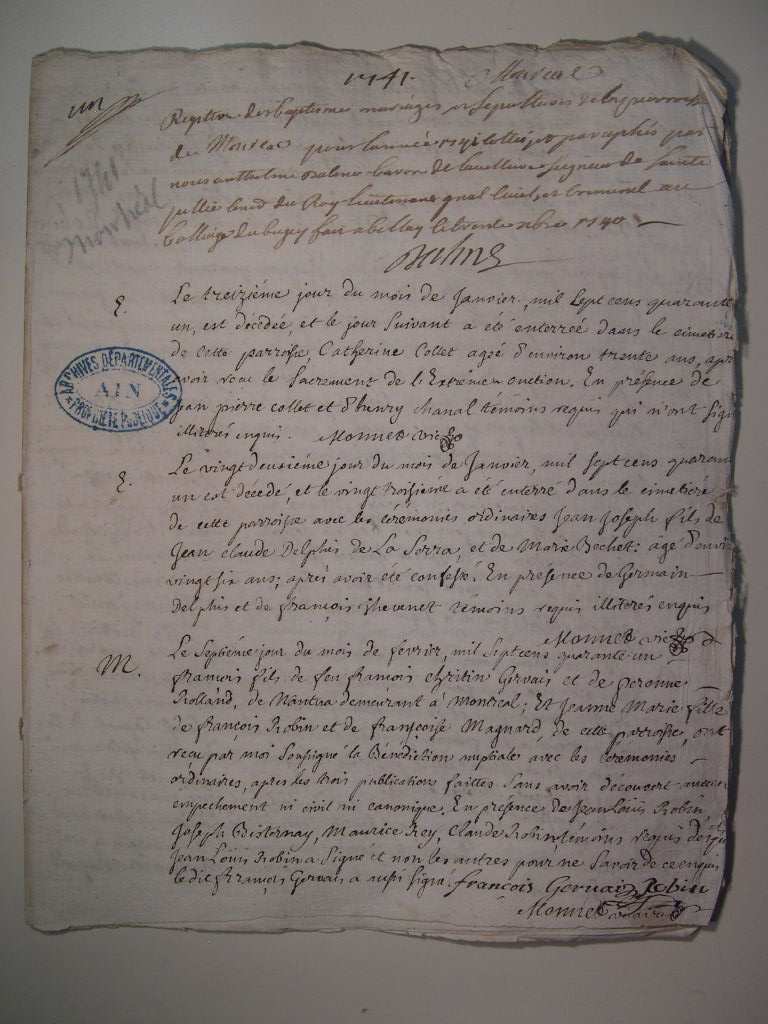 1741. Montreal
un
Registre des baptemes mariages et sepultures de la parroisse
de Montreal pour l'année 1741 cotté et paraphés par
nous anthelme Balme baron de seigneur de Sainte
Jullie du Roy Lieutenant gnal Civil et Criminel au
balliage du bugey fait a belley le trente xbre 1740
Balme
1741
Montréal
ARCHIVES DÉPARTEMENTALES
AIN
PROPRIÉTÉ PUBLIQUE
E. Le treiziéme jour du mois de Janvier, mil sept cens quarante
un, est décédée, et le jour suivant a été enterreé dans le cimetiere
de cette parroisse, Catherine Collet ageé d'environ trente ans, apr
avoir recu le Sacrement de l'Extréme onction. En présence de
jean pierre collet et d'henry chanal témoins requis qui n'ont signé
illiterés enquis. Monnet vic
E. Le vingt deusiéme jour du mois de Janvier, mil sept cens quarante
un est décedé, et le vingt troisieme a été enterré dans le cimetiere
de cette parroisse avec les cérémonies ordinaires Jean Joseph fils de
Jean claude Delphis de La Serra, et de Marie Bechet: âgé d'environ
vingt six ans; après avoir été confessé. En présence de Germain
Delphis et de françois thevenet témoins requis illiterés enquis
Monnet vic
M. Le Septiéme jour du mois de février, mil sept cens quarante un
francois fils de feu francois christin Gervais et de peronne
Rolland, de Nantua demeurant à Montreal; Et Jeanne Marie fille
de françois Robin et de françoise Magnard, de cette parroisse, ont
recu par moi soussigné la Bénédiction nuptiale avec les ceremonies
ordinaires, apres les trois publications faittes sans avoir découvert aucun
empechement ni civil ni canonique. En présence de Jean Louis Robin
Joseph Maurice Rey, Claude Robin témoins requis
Jean Louis Robin a signé et non les autres pour ne savoir de ce enquis
le dit françois Gervais a aussi signé. francois Gervais Robin
Monnet vicaire